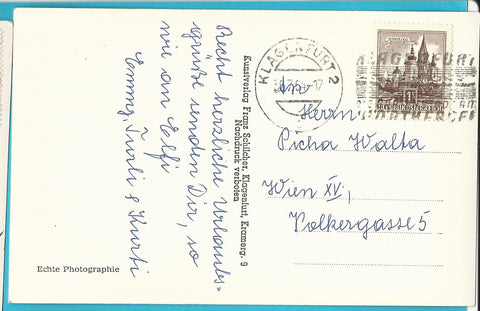 Recht herzliche Urlaubs=
grüße senden Dir, so
wie an Elfi
Emmy, Turli & Kurti
Kunstverlag Franz Schilcher, Klagenfurt, Kramerg. 9
Nachdruck verboten
Echte Photographie
KLAGENFURT 2
KLAGENFURT
WÖRTHERSEE
REPUBLIK ÖSTERREICH
An
Herrn
Picha Walta
Wien XV,
Volkergasse 5